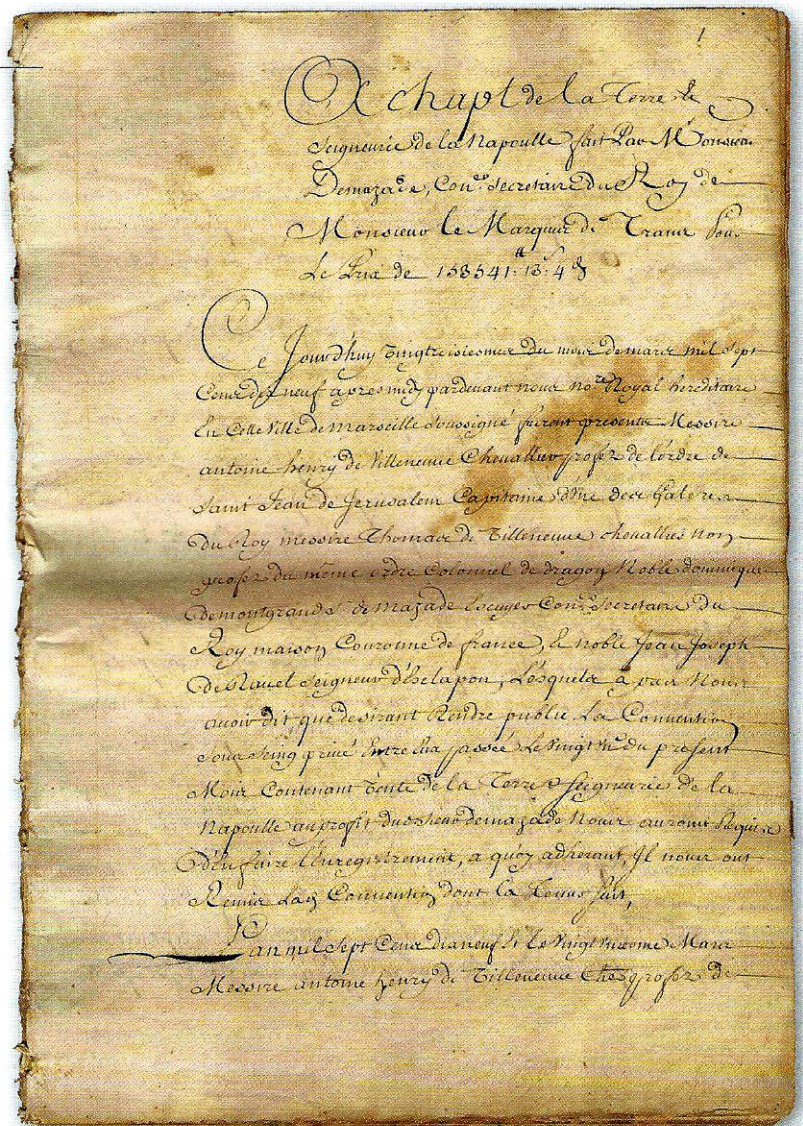 1
Achapt de la Terre &
Seigneurie de la Napoulle fait Par Monsieur
Demazade, Con.er Secretaire du Roy de
Monsieur le Marquis de Trans Pour
Le Prix de 158541.tt 13.s 4 d
Ce Jourdhuy Vingtroisiesme du mois de mars mil sept
Cens dix neuf apres midy pardevant nous no.re Royal hereditaire
En Cette Ville de Marseille Soussigné furent presents Messire
antoine henry de Villeneuve Chevallier profez de l'ordre de
Saint Jean de Jerusalem Capitaine d'Une des Galeres
Du Roy messire Thomas de Villeneuve chevallier non
profez du même ordre Colonnel de dragon Noble dominique
Demontgrand S. de mazade Escuyer Con.er Secretaire du
Roy maison Couronne de france, & noble Jean Joseph
De Ravel Seigneur d'Esclapon, Lesquels a par Nous
avoir dit que desirant Rendre public La Convention
Sous Seing privé Entre Eux passée Le Vingt du present
Mois Contenant Vente de la Terre & Seigneurie de la
Napoulle au profit du Sieur demazade Nous auront Requis
D'En faire L'Enregistrement, a quoy adherant, Il nous ont
Remis Lad. Convention dont la Teneur suit,
L'an mil sept Cens dix neuf & le Vingt Mars
Messire antoine henry de Villeneuve Che.r profez de